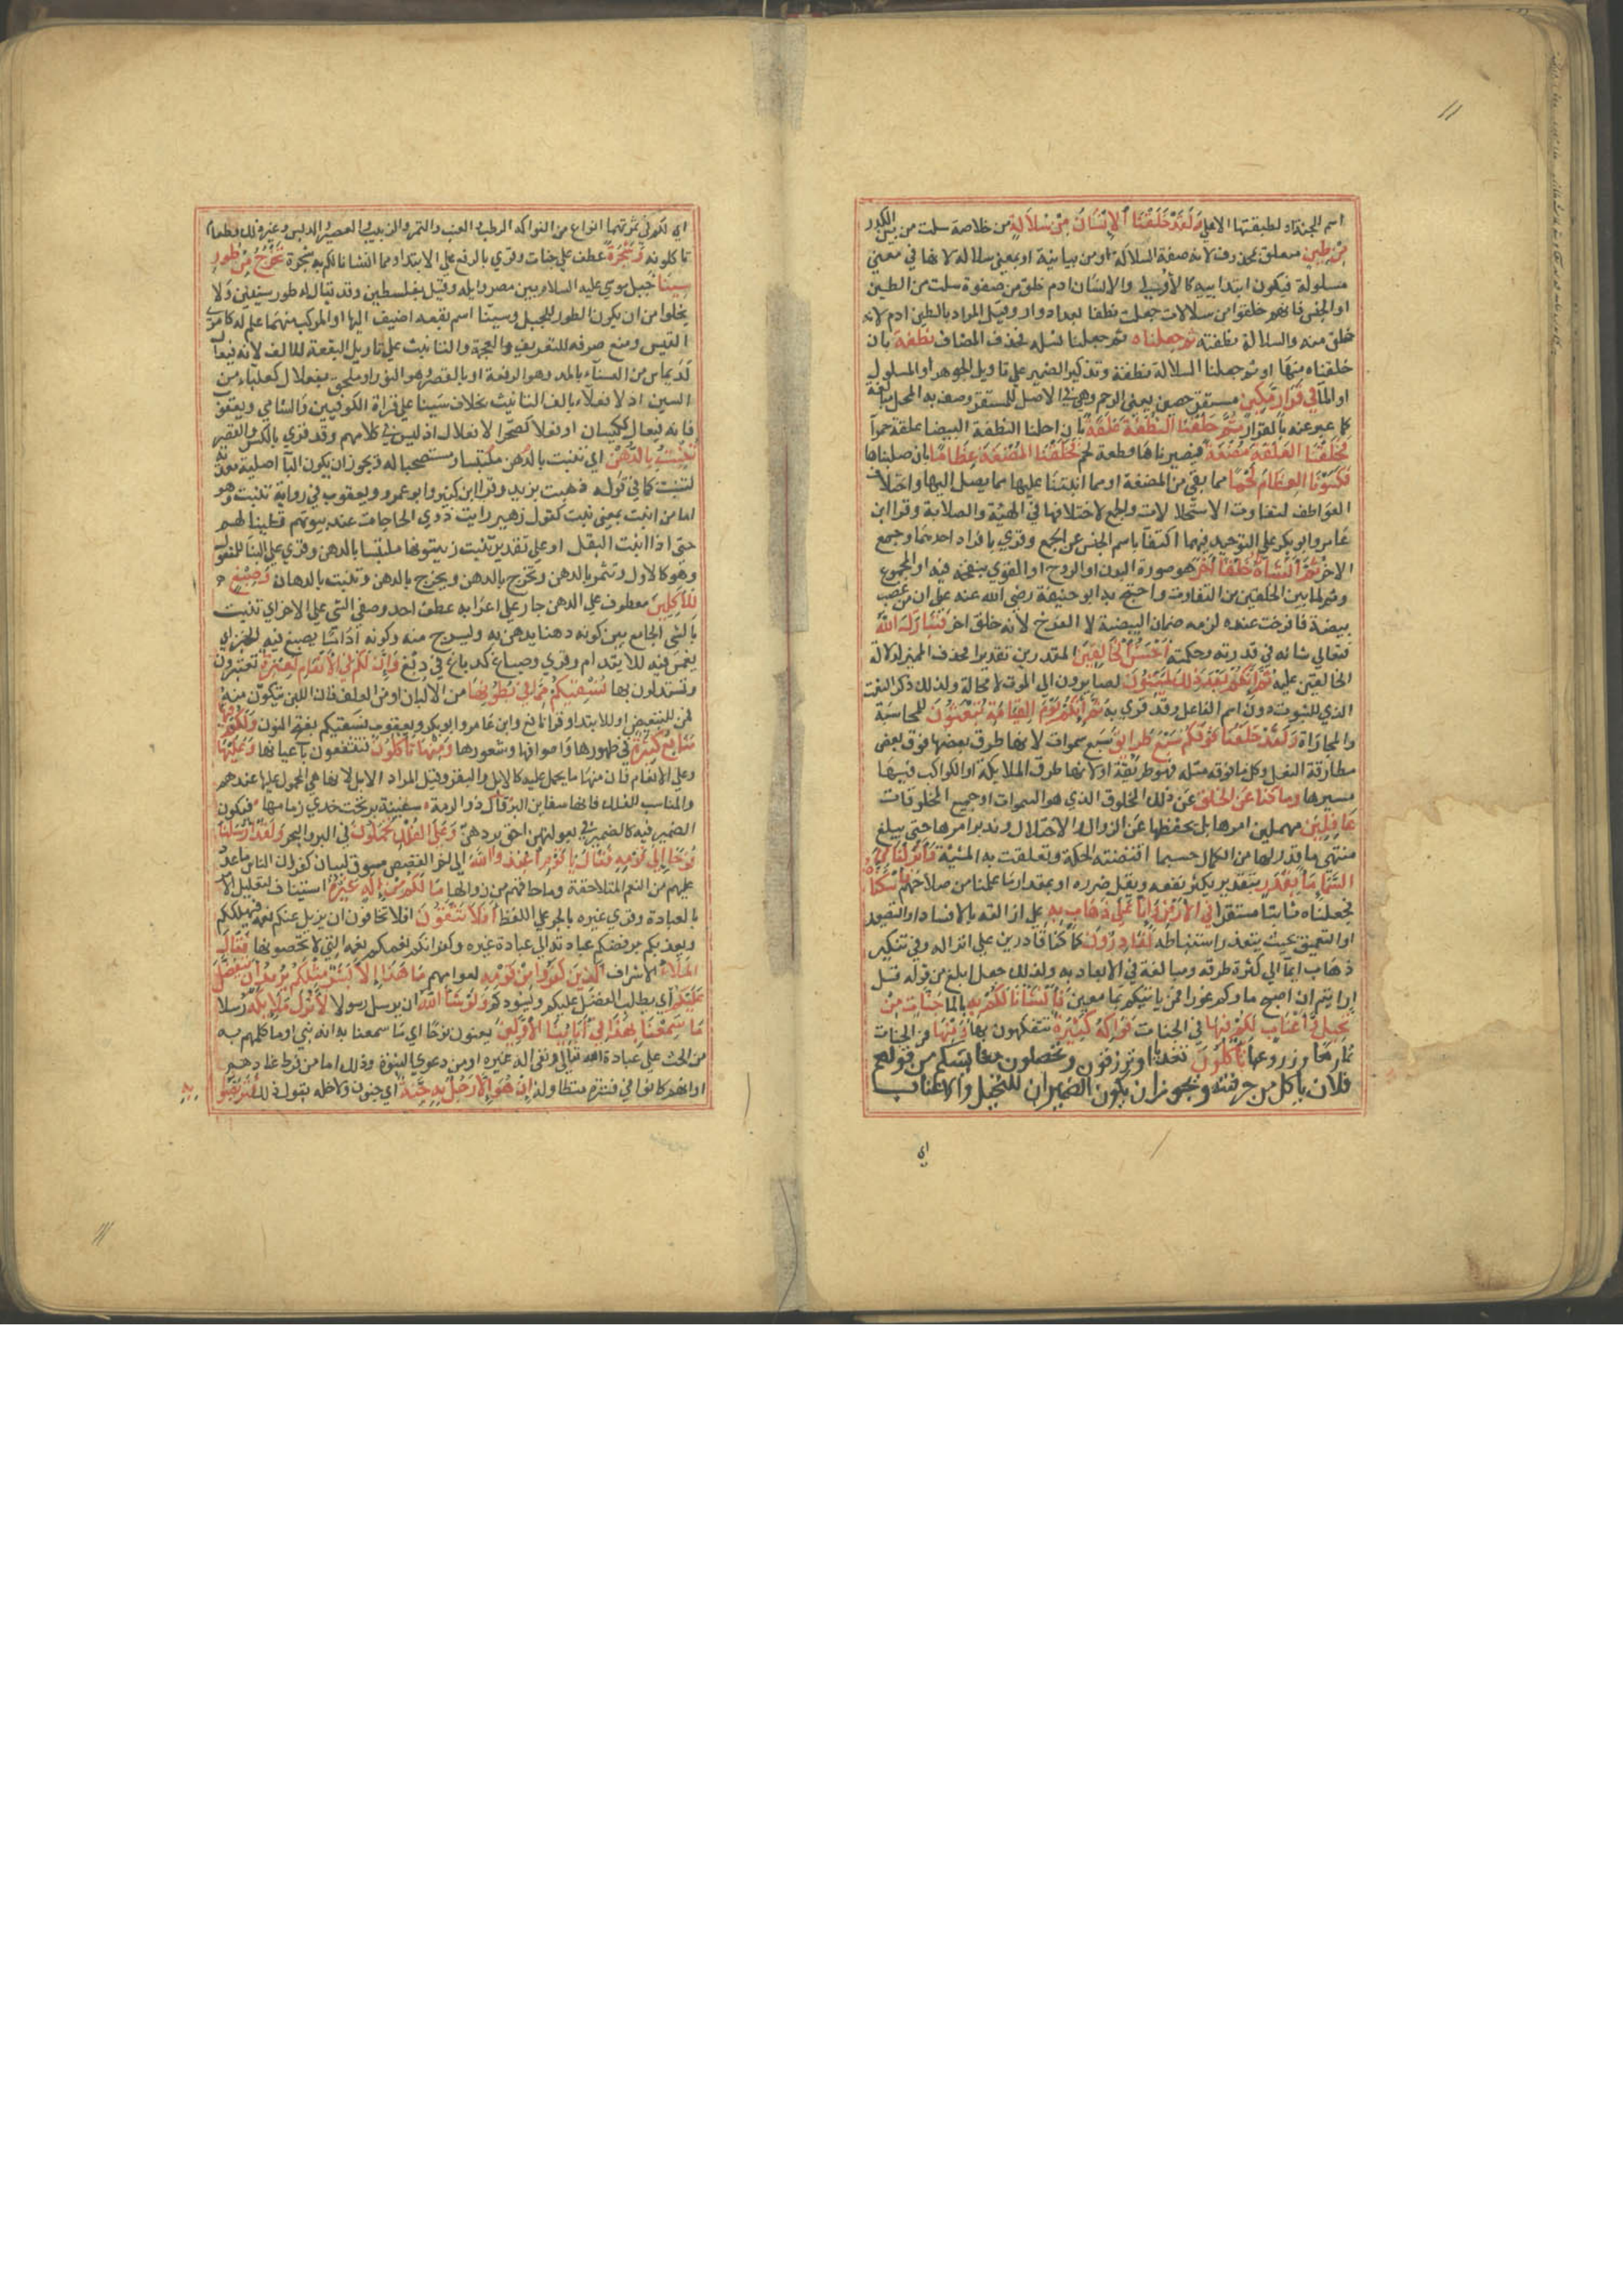 ١١
اسم للجنة او لطبقتها الاعلي وَلَقَدْ خَلَقْنَا الْاِنْسَانَ مِنْ سُلَالَةٍ من خلاصة سلت من بين الكدر
مِنْ طِينٍ متعلق بمحذوف لانه صفة لسلالة او من بيانية او بمعني سلالة لانها في معني
مسلولة فيكون ابتدائية كالاولي والانسان ادم خلق من صفوة سلت من الطين
او الجنس فانهم خلقوا من سلالات جعلت نطفا بعد ادوار وقيل المراد بالطين ادم لانه
خلق منه والسلالة نطفته ثم جعلناه ثم جعلنا نسله فحذف المضاف نطفة بان
خلقناه منها او ثم جعلنا السلالة نطفة وتذكير الضمير علي تاويل الجوهر او المسلول
او الماء في قَرَارٍ مَكِينٍ مستقر حصين يعني الرحم وهي في الاصل للمستقر وصف به المحل مبالغة
كما عبر عنه بالقرار ثُمَّ خَلَقْنَا النُّطْفَةَ عَلَقَةً بان احلنا النطفة البيضا علقة حمرآ
فَخَلَقْنَا الْعَلَقَةَ مُضْغَةً فصيرناها قطعة لحم فَخَلَقْنَا الْمُضْغَةَ عِظَامًا بان صلبناها
فَكَسَوْنَا الْعِظَامَ لَحْمًا مما بقي من المضغة او مما انبتنا عليها مما يصل اليها واختلاف
العواطف لتفاوت الاستحالات والجمع لاختلافها في الهيئة والصلابة وقرا ابن
عامر وابو بكر علي التوحيد فيهما اكتفآ باسم الجنس عن الجمع وقري بافراد احدهما وجمع
الاخر ثُمَّ اَنْشَأْنَاهُ خَلْقًا آخَرَ هو صورة البدن او الروح او القوي بنفخه فيه او المجموع
وثم لما بين الخلقين من التفاوت واحتج به ابو حنيفة رضي الله عنه علي ان من غصب
بيضة فافرخت عنده لزمه ضمان البيضة لا الفرخ لانه خلق اخر فَتَبَارَكَ اللهُ
فتعالي شانه في قدرته وحكمته اَحْسَنُ الْخَالِقِينَ المقدرين تقديرا فحذف المميز لدلالة
الخالقين عليه ثُمَّ اِنَّكُمْ بَعْدَ ذٰلِكَ لَمَيِّتُونَ لصايرون الي الموت لا محالة ولذلك ذكر النعت
الذي للثبوت دون اسم الفاعل وقد قري به ثُمَّ اِنَّكُمْ يَوْمَ الْقِيَامَةِ تُبْعَثُونَ للمحاسبة
والمجازاة وَلَقَدْ خَلَقْنَا فَوْقَكُمْ سَبْعَ طَرَايِقَ سبع سموات لانها طرق بعضها فوق بعض
مطارقة النعل وكل ما فوقه مثله فهو طريقة او لانها طرق الملايكة او الكواكب فيها
مسيرها وَمَا كُنَّا عَنِ الْخَلْقِ عن ذلك المخلوق الذي هو السموات او جميع المخلوقات
غَافِلِينَ مهملين امرها بل نحفظها عن الزوال والاختلال وندبر امرها حتي يبلغ
منتهي ما قدر لها من الكمال حسبما اقتضته الحكمة وتعلقت به المشية وَاَنْزَلْنَا مِنَ
السَّمَآءِ مَآءً بِقَدَرٍ بتقدير يكثر نفعه ويقل ضرره او بمقدار ما علمنا من صلاحهم فَاَسْكَنَّاهُ
فجعلناه ثابتا مستقرا فِي الْاَرْضِ وَاِنَّا عَلٰي ذَهَابٍ بِهِ علي ازالته بالافساد او التصعيد
او التعميق بحيث يتعذر استنباطه لَقَادِرُونَ كما كنا قادرين علي انزاله وفي تنكير
ذهاب ايمآ الي كثرة طرقه ومبالغة في الابعاد به ولذلك جعل ابلغ من قوله قل
ارايتم ان اصبح ماوكم غورا فمن ياتيكم بما معين فَاَنْشَأْنَا لَكُمْ بِهِ بالما جَنَّاتٍ مِنْ
نَخِيلٍ وَاَعْنَابٍ لَكُمْ فِيهَا في الجنات فَوَاكِهُ كَثِيرَةٌ تتفكهون بها وَمِنْهَا من الجنات
ثمارها وزروعها تَأْكُلُونَ تغذيا او ترزقون وتحصلون معايشكم من قولهم
فلان ياكل من حرفته ويجوز ان يكون الضميران للنخيل والاعناب
اي
اي لكم في ثمرتهما انواع من الفواكه الرطب والعنب والتمر والزبيب والعصير والدبس وغير ذلك وطعام
تاكلونه وَشَجَرَةً عطف علي جنات وقري بالرفع علي الابتدا اي ومما انشانا لكم به شجرة تَخْرُجُ مِنْ طُورِ
سِينَا جبل موسي عليه السلام بين مصر وايله وقيل بفلسطين وقد يقال له طور سينين ولا
يخلوا من ان يكون الطور للجبل وسينا اسم بقعة اضيف اليها او المركب منهما علم له كامري
القيس ومنع صرفه للتعريف والعجمة والتانيث علي تاويل البقعة لا للالف لانه فيعال
كديماس من السنآء بالمد وهو الرفعة او بالقصر وهو النور او ملحق بفعلال كعلباء من
السين اذ لا فعلاء بالف التانيث بخلاف سَينا علي قراة الكوفيين والشامي ويعقوب
فانه فيعال ككيسان او فعلا كصحرا لا فعلال اذ ليس في كلامهم وقد قري بالكسر والقصر
تَنْبُتُ بِالدُّهْنِ اي تنبت بالدهن ملتبسا ومستصحبا له ويجوز ان يكون البآ صلة معدية
لتنبت كما في قولك ذهبت بزيد وقرا ابن كثير وابو عمرو ويعقوب في رواية تنبت وهو
اما من انبت بمعني نبت كقول زهير رايت ذوي الحاجات عند بيوتهم قطينا لهم
حتي اذا انبت البقل او علي تقدير تنبت زيتونها ملتبسا بالدهن وقري علي البنا للمفعول
وهو كالاول وتثمر بالدهن وتخرج بالدهن ويخرج بالدهن وتنبت بالدهان وَصِبْغٍ
لِلْآكِلِينَ معطوف علي الدهن جار علي اعرابه عطف احد وصفي الشي علي الاخر اي تنبت
بالشي الجامع بين كونه دهنا يدهن به ويسرج منه وكونه اداما يصبغ فيه الخبز اي
يغمس فيه للايتدام وقري وصباغ كدباغ في دبغ وَاِنَّ لَكُمْ فِي الْاَنْعَامِ لَعِبْرَةً تعتبرون
وتستدلون بها نُسْقِيكُمْ مِمَّا فِي بُطُونِهَا من الالبان او من العلف فان اللبن يتكون منه
فمن للتبعيض او للابتدا وقرا نافع وابن عامر وابو بكر ويعقوب نسقيكم بفتح النون وَلَكُمْ فِيهَا
مَنَافِعُ كَثِيرَةٌ في ظهورها واصوافها وشعورها وَمِنْهَا تَأْكُلُونَ فتنتفعون باعيانها وَعَلَيْهَا
وعلي الانعام فان منها ما يحمل عليه كالابل والبقر وقيل المراد الابل لانها هي المحمول عليها عندهم
والمناسب للفلك فانها سفاين البر قال ذو الرمة سفينة بر تحت خدي زمامها فيكون
الضمير فيه كالضمير في وبعولتهن احق بردهن وَعَلَي الْفُلْكِ تُحْمَلُونَ في البر والبحر وَلَقَدْ اَرْسَلْنَا
نُوحًا اِلٰي قَوْمِهِ فَقَالَ يَا قَوْمِ اعْبُدُوا اللهَ الي اخر القصص مسوق لبيان كفران الناس ما عدد
عليهم من النعم المتلاحقة وما حاقهم من زوالها مَا لَكُمْ مِنْ اِلٰهٍ غَيْرُهُ استيناف لتعليل الامر
بالعبادة وقري غيره بالجر علي اللفظ اَفَلَا تَتَّقُونَ افلا تخافون ان يزيل عنكم نعمه فيهلككم
ويعذبكم برفضكم عبادته الي عبادة غيره وكفرانكم نعمه التي لا تحصونها فَقَالَ
الْمَلَأُ الاشراف الَّذِينَ كَفَرُوا مِنْ قَوْمِهِ لعوامهم مَا هٰذَا اِلَّا بَشَرٌ مِثْلُكُمْ يُرِيدُ اَنْ يَتَفَضَّلَ
عَلَيْكُمْ اي يطلب الفضل عليكم ويسودكم وَلَوْ شَآءَ اللهُ ان يرسل رسولا لَاَنْزَلَ مَلَايِكَةً رسلا
مَا سَمِعْنَا بِهٰذَا فِي آبَايِنَا الْاَوَّلِينَ يعنون نوحا اي ما سمعنا به انه نبي او ما كلمهم به
من الحث علي عبادة الله تعالي ونفي اله غيره او من دعوي النبوة وذلك اما من فرط عنادهم
او انهم كانوا في فترة متطاولة اِنْ هُوَ اِلَّا رَجُلٌ بِهِ جِنَّةٌ اي جنون ولاجله يقول ذلك فَتَرَبَّصُوا